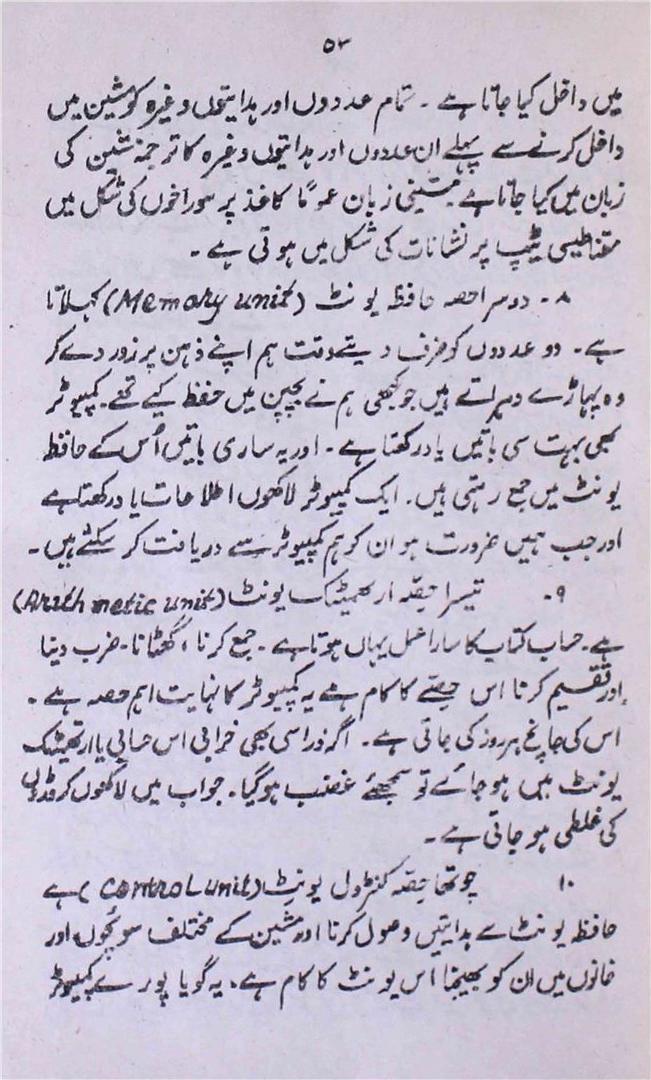 ۵۳
میں داخل کیا جاتا ہے ۔ تمام عددوں اور ہدایتوں وغیرہ کو مشین میں
داخل کرنے سے پہلے ان عددوں اور ہدایتوں وغیرہ کا ترجمہ مشین کی
زبان میں کیا جاتا ہے مشینی زبان عموماً کاغذ پر سوراخوں کی شکل میں
مقناطیسی ٹیپ پر نشانات کی شکل میں ہوتی ہے ۔
۸ ۔ دوسرا حصہ حافظ یونٹ (Memory unit) کہلاتا
ہے ۔ دو عددوں کو ضرب دیتے وقت ہم اپنے ذہن پر زور دے کر
وہ پہاڑے دہراتے ہیں جو کبھی ہم نے بچپن میں حفظ کیے تھے۔ کمپیوٹر
بھی بہت سی باتیں یاد رکھتا ہے ۔ اور یہ ساری باتیں اُس کے حافظ
یونٹ میں جمع رہتی ہیں ۔ ایک کمپیوٹر لاکھوں اطلاعات یاد رکھتا ہے
اور جب ہمیں ضرورت ہو ان کو ہم کمپیوٹر سے دریافت کر سکتے ہیں ۔
۹ ۔ تیسرا حصّہ ارتھمیٹک یونٹ (Arith metic unit)
ہے ۔ حساب کتاب کا سارا عمل یہاں ہوتا ہے ۔ جمع کرنا ، گھٹانا ۔ ضرب دینا
اور تقسیم کرنا اس حصّے کا کام ہے یہ کمپیوٹر کا نہایت اہم حصہ ہے ۔
اس کی جانچ ہر روز کی جاتی ہے ۔ اگر ذرا سی بھی خرابی اس حسابی یا ارتھمیٹک
یونٹ میں ہو جائے تو سمجھئے غضب ہو گیا ۔ جواب میں لاکھوں کروڑوں
کی غلطی ہو جاتی ہے ۔
۱۰ چوتھا حصّہ کنٹرول یونٹ (Control unit) ہے
حافظ یونٹ سے ہدایتیں وصول کرنا اور مشین کے مختلف سوئچوں اور
خانوں میں ان کو بھیجنا اس یونٹ کا کام ہے ، یہ گویا پورے کمپیوٹر